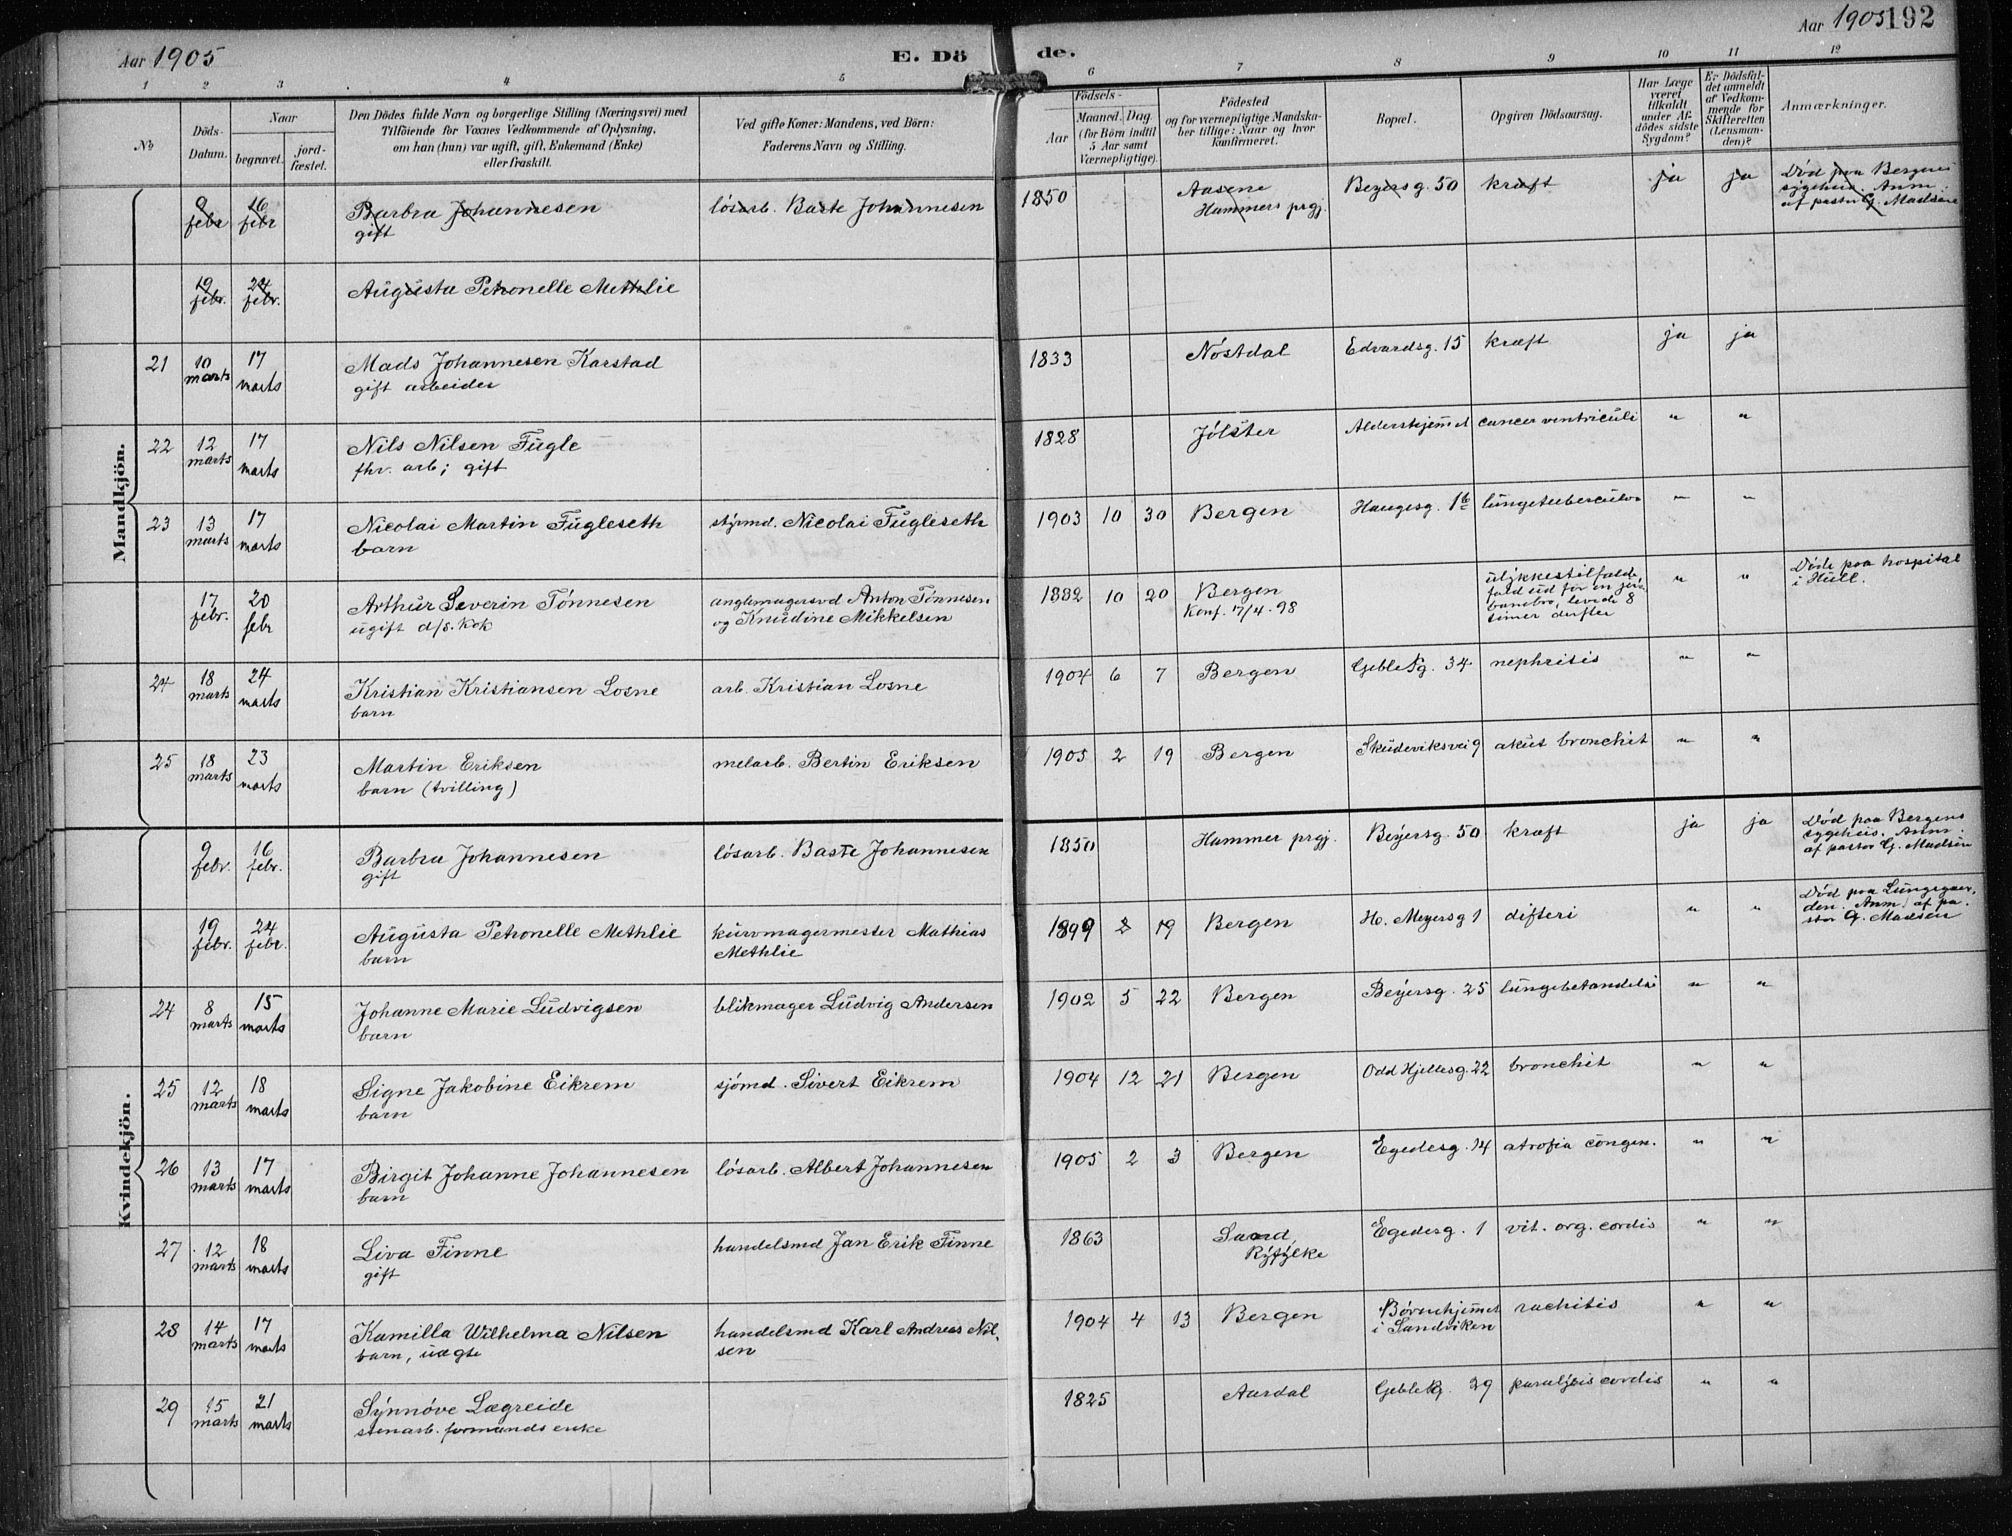 Aar 1905
E. Dö
de.
Aar 1905
192
1 2 3 4 5 6 7 8 9 10 11 12
No
Döds-Datum.
Naar
begravet.
jord-fæstet.
Den Dödes fulde Navn og borgerlige Stilling (Næringsvei) med
Tilföiende for Voxnes Vedkommende af Oplysning,
om han (hun) var ugift, gift, Enkemand (Enke)
eller fraskilt.
Ved gifte Koner: Mandens, ved Börn:
Faderens Navn og Stilling.
Födsels-
Aar
Maaned. Dag
(for Börn indtil
5 Aar samt
Værnepligtige).
Födested
og for værnepligtige Mandska-
ber tillige: Naar og hvor
konfirmeret.
Bopæl.
Opgiven Dödsaarsag.
Har Læge
været
tilkaldt
under Af-
dödes sidste
Sygdom?
Er Dödsfal-
det anmeldt
af Vedkom-
mende for
Skifteretten
(Lensman-
den)?
Anmærkninger.
Mandkjön.
9 febr 16 febr Barbra Johannesen løsarb. Baste Johannesen 1850 Aasene Beyersg. 50 kræft ja ja Død paa Bergens
gift Hammers prgj. sygehus. Anm.
af pastor G. Madsen
19 febr. 24 febr. Augusta Petronelle Methlie
21 10 marts 17 marts Mads Johannesen Karstad 1833 Nøstdal Edvardsg. 15 kræft ja ja
gift arbeider
22 12 marts 17 marts Nils Nilsen Fugle 1828 Jølster Aldershjemmet cancer ventriculi " "
fhv. arb; gift
23 13 marts 17 marts Nicolai Martin Fugleseth styrmd. Nicolai Fugleseth 1903 10 30 Bergen Haugesg. 16 lungetuberculos " "
barn
17 febr. 20 febr Arthur Severin Tønnesen anglemagersvd Anton Tønnesen 1882 10 20 Bergen ulykkestilfælde, " " Døde paa hospital
ugift d/s. kok og Knudine Mikkelsen Konf. 7/4 - 98 fald ud for en jern- i Hull.
banebro, levede 8
timer derefter
24 18 marts 24 marts Kristian Kristiansen Losne arb. Kristian Losne 1904 6 7 Bergen Gebleksg. 34 nephritis " "
barn
25 18 marts 23 marts Martin Eriksen melarb. Bertin Eriksen 1905 2 19 Bergen Skudeviksvei 9 akut bronchit " "
barn (tvilling)
Kvindekjön.
9 febr. 16 febr. Barbra Johannesen løsarb. Baste Johannesen 1850 Hammer prgj. Beyersg. 50 kræft ja ja Død paa Bergens
gift sygehus. Anm.
af pastor G. Madsen
19 febr. 24 febr. Augusta Petronelle Methlie kurvmagermester Mathias 1899 2 19 Bergen H. Meyersg 1 difteri " " Død paa Lungegaar-
barn Methlie den. Anm. af pa-
stor G. Madsen
24 8 marts 15 marts Johanne Marie Ludvigsen blikmager Ludvig Andersen 1902 5 22 Bergen Beyersg. 25 lungebetændelse " "
barn
25 12 marts 18 marts Signe Jakobine Eikrem sjømd. Sivert Eikrem 1904 12 21 Bergen Odd Hjeltesg. 22 bronchit " "
barn
26 13 marts 17 marts Birgit Johanne Johannesen løsarb. Albert Johannesen 1905 2 3 Bergen Egedesg. 14 atrofia congen. " "
barn
27 12 marts 18 marts Liva Finne handelsmd Jan Erik Finne 1863 Sand, Egedesg. 1 vit. org. cordis " "
gift Ryfylke
28 14 marts 17 marts Kamilla Wilhelma Nilsen handelsmd Karl Andreas Nil- 1904 4 13 Bergen Børnehjemmet rachitis " "
barn, uægte sen i Sandviken
29 15 marts 21 marts Synnøve Lægreide 1825 Aardal 29 paralysis cordis " "
stenarb. formands enke